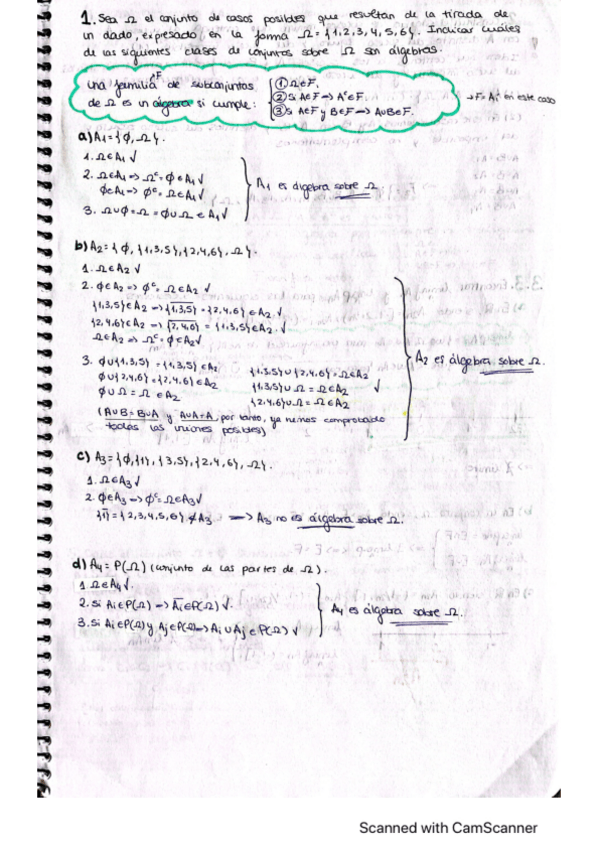 1. Sea Ω el conjunto de casos posibles que resultan de la tirada de
un dado, expresado en la forma Ω = {1,2,3,4,5,6}. Indicar cuáles
de las siguientes clases de conjuntos sobre Ω sin álgebras.
una familia F de subconjuntos
de Ω es un álgebra si cumple:
① Ω∈F.
② Si A∈F ⇒ Aᶜ∈F.
③ Si A∈F y B∈F ⇒ A∪B∈F.
→ F = Ai en este caso
a) A₁ = {∅, Ω}.
1. Ω∈A₁ √
2. Ω∈A₁ ⇒ Ωᶜ = ∅∈A₁ √
∅∈A₁ ⇒ ∅ᶜ = Ω∈A₁ √
3. Ω∪∅ = Ω = ∅∪Ω ∈ A₁ √
A₁ es álgebra sobre Ω
b) A₂ = {∅, {1,3,5}, {2,4,6}, Ω}.
1. Ω∈A₂ √
2. ∅∈A₂ ⇒ ∅ᶜ = Ω∈A₂ √
{1,3,5}∈A₂ ⇒ {1,3,5}‾ = {2,4,6}∈A₂ √
{2,4,6}∈A₂ ⇒ {2,4,6}‾ = {1,3,5}∈A₂ √
Ω∈A₂ ⇒ Ωᶜ = ∅∈A₂ √
3. ∅∪{1,3,5} = {1,3,5}∈A₂ {1,3,5}∪{2,4,6} = Ω∈A₂
∅∪{2,4,6} = {2,4,6}∈A₂ {1,3,5}∪Ω = Ω∈A₂ √
∅∪Ω = Ω ∈A₂ {2,4,6}∪Ω = Ω∈A₂
(A∪B = B∪A y A∪A = A, por tanto, ya hemos comprobado
todas las uniones posibles)
A₂ es álgebra sobre Ω.
c) A₃ = {∅, {1}, {3,5}, {2,4,6}, Ω}.
1. Ω∈A₃ √
2. ∅∈A₃ ⇒ ∅ᶜ = Ω∈A₃ √
{1}‾ = {2,3,4,5,6}∉A₃ → A₃ no es álgebra sobre Ω.
d) A₄ = P(Ω) (conjunto de las partes de Ω).
1. Ω∈A₄ √.
2. Si Ai∈P(Ω) ⇒ Āi∈P(Ω) √.
3. Si Ai∈P(Ω) y Aj∈P(Ω) ⇒ Ai∪Aj∈P(Ω) √
A₄ es álgebra sobre Ω.
Scanned with CamScanner